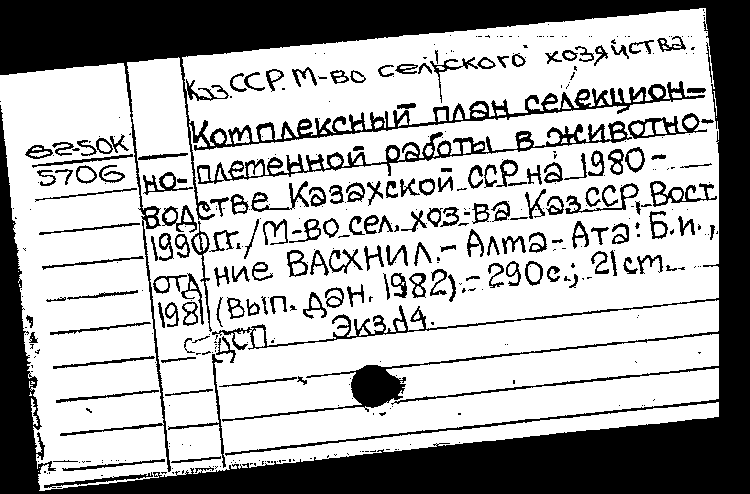 Каз.ССР. М-во сельского хозяйства.
Комплексный план селекцион-
но-племенной работы в животно-
водстве Казахской ССР на 1980-
1990 гг. / М-во сел. хоз-ва Каз.ССР, Вост.
отд-ние ВАСХНИЛ. - Алма-Ата: Б.и.,
1981 (Вып. дан. 1982). - 290 с.; 21 cm.
ДСП. Экз.№4.
62-50К
5706